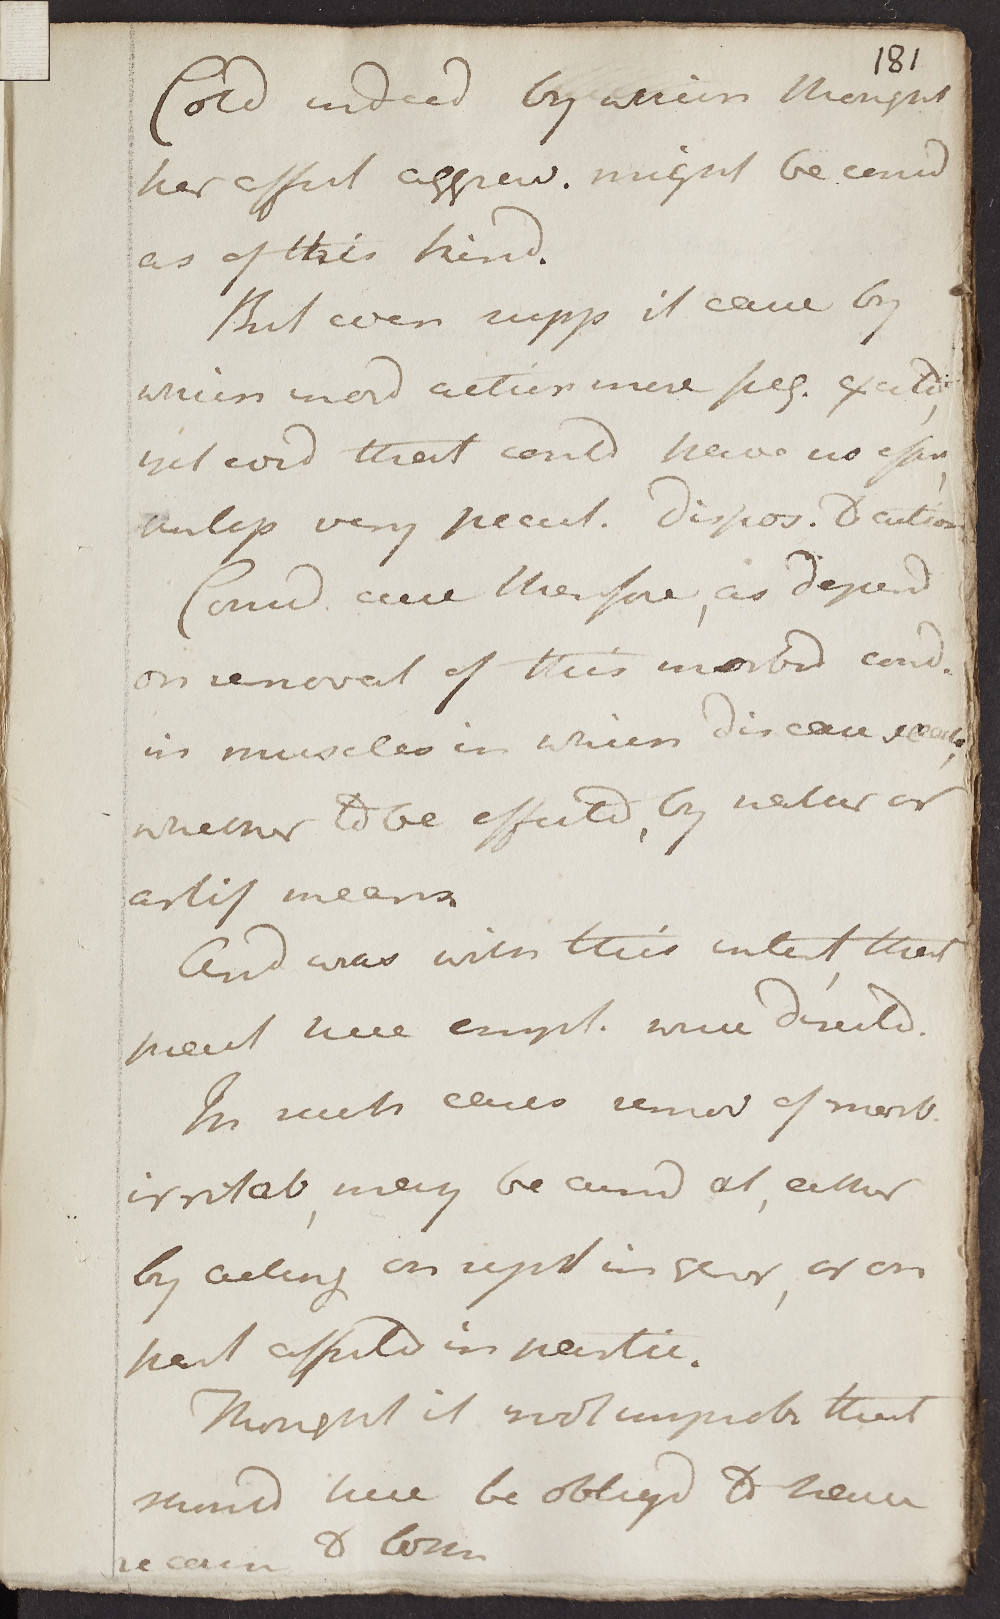 181
Cold indeed by which thought
her affect aggrav. might be consid
as of this kind.
But even supp it came by
which mord action were freq. excitd,
yet cord that could have no effec,
unless very pecul. dispos. to action
Consid. cure therefore, as depend
on removal of this morbid cond.
in muscles in which disease seatd,
whether to be effectd, by natur or
artif means.
And was with this intent, that
meat here empl. were directd.
In such cases remov of morb.
irritab, may be aimd at, either
by acting on syst in gener, or on
part affectd in partic.
Thought it not improb that
should here be obligd to have
recour to both